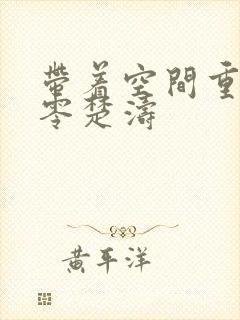 帶着空間重
零楚濤
黄平洋